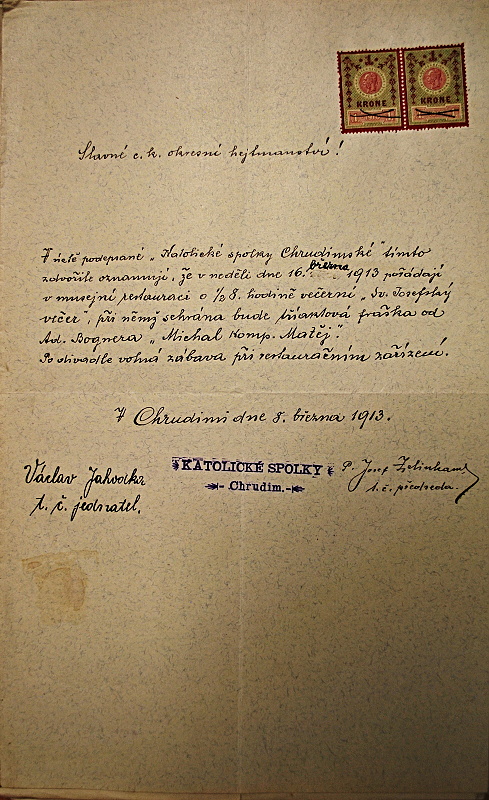 1 1
KRONE KRONE
Slavné c. k. okresní hejtmanství!
V úctě podepsané „Katolické spolky Chrudimské" tímto
března
zdvořile oznamují, že v neděli dne 16. 1913 pořádají
v musejní restauraci o ½8. hodině večerní „Sv. Josefský
večer", při němž sehrána bude tříaktová fraška od
Ad. Bognera „Michal komp. Matěj".
Po divadle volná zábava při restauračním zařízení.
V Chrudimi dne 8. března 1913.
KATOLICKÉ SPOLKY
Chrudim.
Václav
t. č. jednatel.
P. Josef
t. č. předseda.